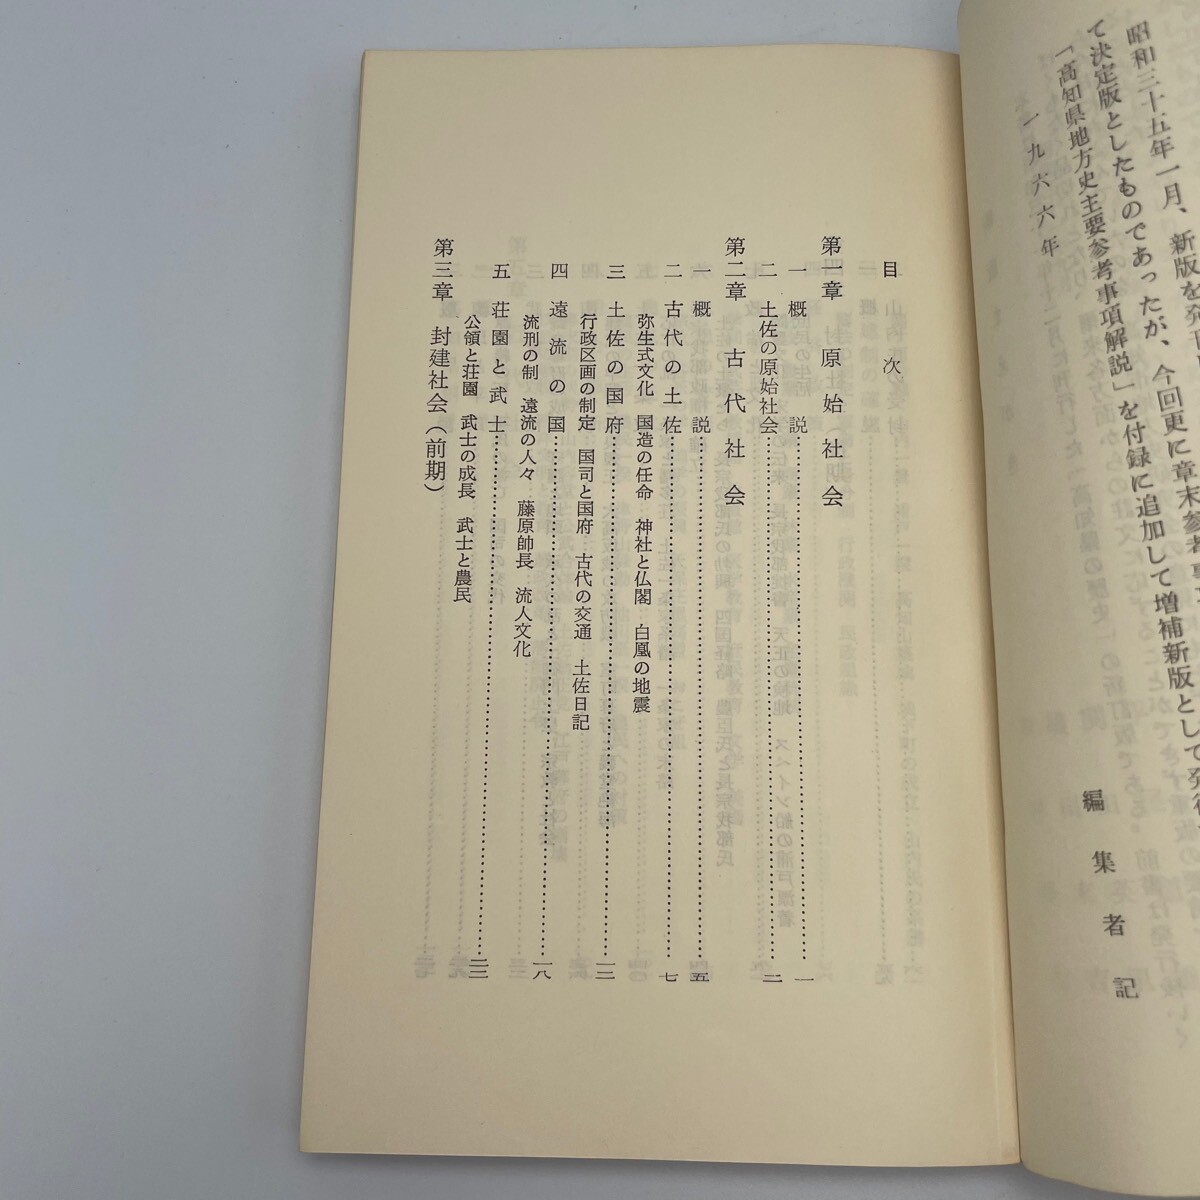 昭和三十五年一月、新版を発
て決定版としたものであったが、今回更に章末参考
「高知県地方史主要参考事項解説」を付録に追加して増補新版として発行
一九六六年
編集者記
目次
第一章 原始社会
一 概説……一
二 土佐の原始社会……二
第二章 古代社会
一 概説……五
二 古代の土佐……七
弥生式文化 国造の任命 神社と仏閣 白凰の地震
三 土佐の国府……一二
行政区画の制定 国司と国府 古代の交通 土佐日記
四 遠流の国……一八
流刑の制 遠流の人々 藤原師長 流人文化
五 荘園と武士……二三
公領と荘園 武士の成長 武士と農民
第三章 封建社会（前期）